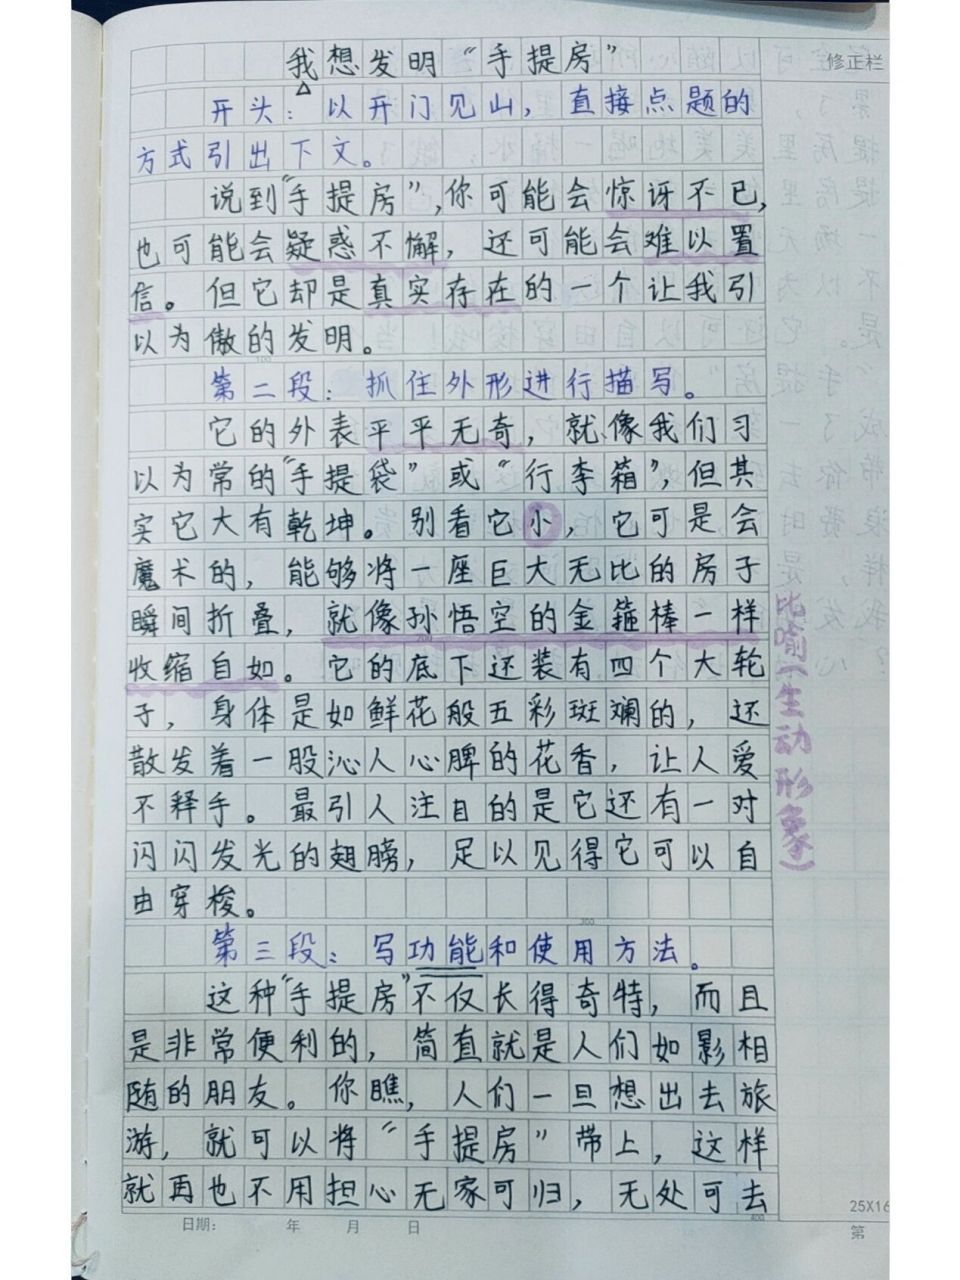 我想发明“手提房”
修正栏
开头：以开门见山，直接点题的
方式引出下文。
说到“手提房”，你可能会惊讶不已，
也可能会疑惑不懈，还可能会难以置
信。但它却是真实存在的一个让我引
以为傲的发明。
100
第二段：抓住外形进行描写。
它的外表平平无奇，就像我们习
以为常的“手提袋”或“行李箱”，但其
实它大有乾坤。别看它小，它可是会
魔术的，能够将一座巨大无比的房子
瞬间折叠，就像孙悟空的金箍棒一样
200
收缩自如。它的底下还装有四个大轮
子，身体是如鲜花般五彩斑斓的，还
散发着一股沁人心脾的花香，让人爱
不释手。最引人注目的是它还有一对
闪闪发光的翅膀，足以见得它可以自
由穿梭。
300
比喻（生动形象）
第三段：写功能和使用方法。
这种“手提房”不仅长得奇特，而且
是非常便利的，简直就是人们如影相
随的朋友。你瞧，人们一旦想出去旅
游，就可以将“手提房”带上，这样
就再也不用担心无家可归，无处可去
400
25X16
日期： 年 月 日
第